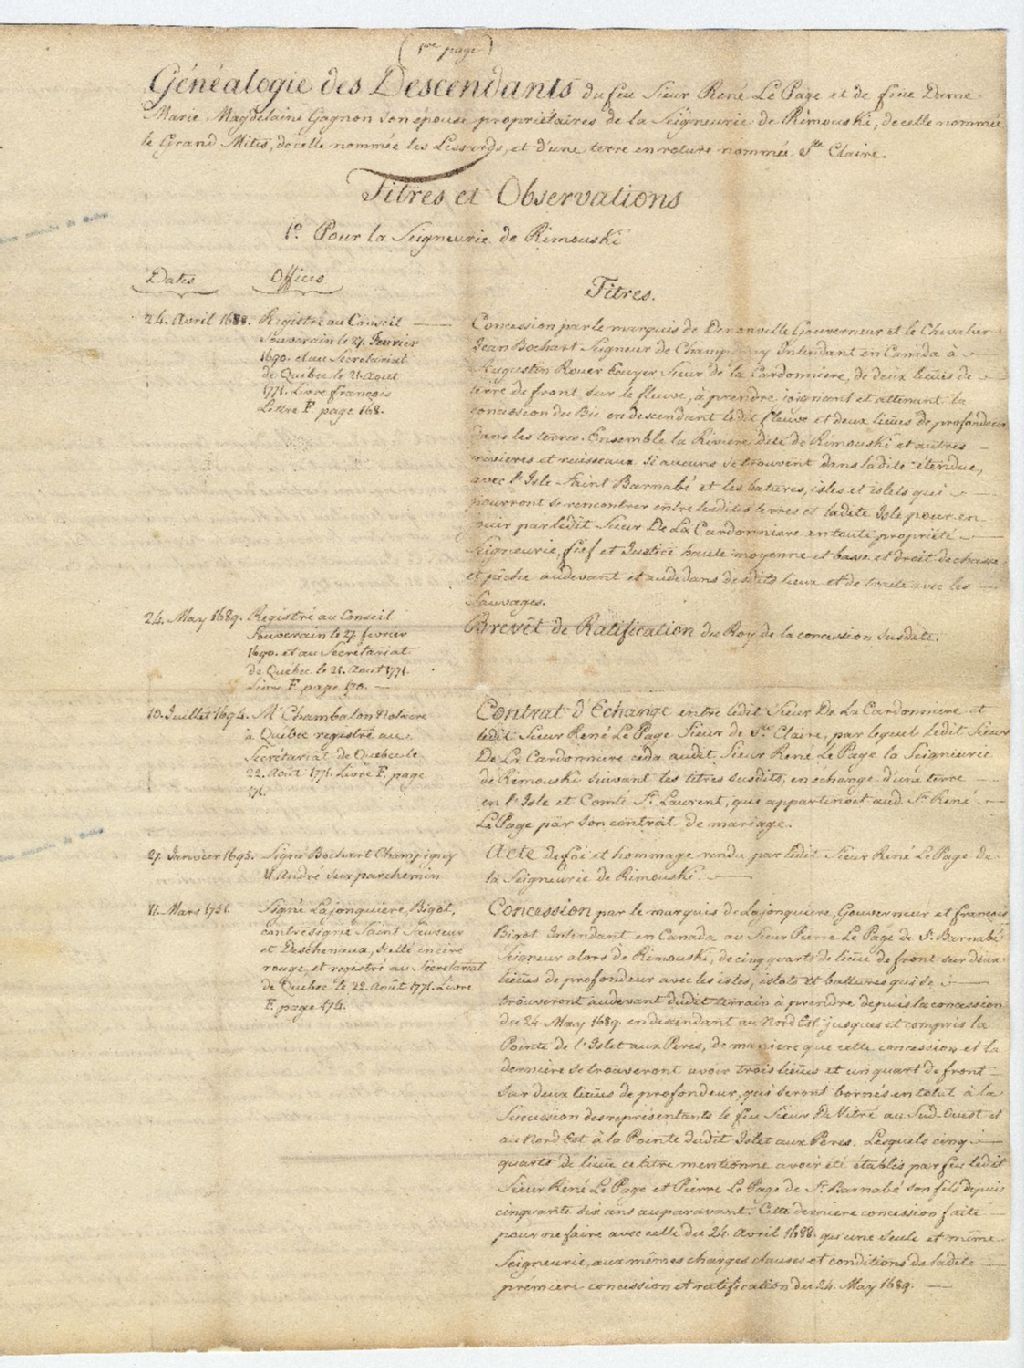 (1re page)
Généalogie des Descendants du feu Sieur René Le Page et de feue Dame
Marie Magdelaine Gagnon son épouse propriétaires de la Seigneurie de Rimouski, de celle nommée
le Grand Mitis, de celle nommée les Lessards, et d'une terre en roture nommée Ste Claire.
Titres et Observations
1o Pour la Seigneurie de Rimouski
Dates Offices Titres.
24. Avril 1688. Registré au Conseil
Souverain le 27. Fevrier
1690. et au Secretariat
de Québec le 21. Aout
1771. Livre François
Lettre F. page 168.
Concession par le marquis de Denonville Gouverneur et le Chevalier
Jean Bochart Seigneur de Champigny Intendant en Canada à
Augustin Rouer Ecuyer Sieur de la Cardonniere, de deux lieües de
terre de front sur le fleuve, à prendre joignant et attenant la
concession du Bic en descendant ledit fleuve et deux lieües de profondeur
dans les terres. Ensemble la Riviere dite de Rimouski et autres
rivieres et ruisseaux si aucuns se trouvent dans ladite étendue,
avec l'Isle Saint Barnabé et les batures, isles et islets qui
pourront se rencontrer entre lesdites terres et ladite Isle pour en
jouir par ledit Sieur De La Cardonniere en toute propriété
Seigneurie, fief et Justice haute moyenne et basse et droit de chasse
et pêche audevant et audedans desdits lieux et de traite avec les
Sauvages.
24. May 1689. Registré au Conseil
Souverain le 27. fevrier
1690. et au Secretariat
de Québec le 21. Aout 1771.
Livre F. page 170.
Brevêt de Ratification du Roy de la concession susdite.
10. Juillet 1694. Mr Chambalon Notaire
à Quebec registré au
Secrétariat de Quebec le
22. Aout 1771. Livre F. page
171.
Contrat d'Echange entre ledit Sieur De La Cardonniere et
ledit Sieur René Le Page Sieur de Ste Claire, par lequel ledit Sieur
De La Cardonniere céda audit Sieur René Le Page la Seigneurie
de Rimouski suivant les titres susdits, en échange d'une terre
en l'Isle et Comté St. Laurent, que appartenoit aud. Sr. René
Le Page par son contrat de mariage.
27. Janvier 1695. Signé Bochart Champigny
et André sur parchemin
Acte de foi et hommage rendu par ledit Sieur René Le Page de
la Seigneurie de Rimouski.
11. Mars 1751. Signé Lajonquiere, Bigot,
contresigné Saint Sauveur
et Deschenaux, scellé en cire
rouge, et registré au Secretariat
de Quebec le 22. Août 1771. Livre
F. page 174.
Concession par le marquis de Lajonquiere Gouverneur et françois
Bigot Intendant en Canada au Sieur Pierre Le Page de St. Barnabé
Seigneur alors de Rimouski, de cinq quarts de lieüe de front sur deux
lieües de profondeur avec les isles, islots et battures qui se
trouveront audevant dudit terrain à prendre depuis la concession
du 24. May 1689. en descendant au Nord Est jusques et compris la
Pointe de l'Islet aux Peres, de maniere que cette concession et la
derniere se trouveront avoir trois lieües et un quart de front
sur deux lieües de profondeur, qui seront bornés en total à la
Succession des représentants le feu Sieur De Vitré au Sud-Ouest et
au Nord Est à la Pointe dudit Islet aux Peres. Lesquels cinq
quarts de lieüe ce titre mentionne avoir été établis par feu ledit
Sieur René Le Page et Pierre Le Page de St. Barnabé son fils depuis
cinquante six ans auparavant. Cette derniere concession faite
pour ne faire avec celle du 24. Avril 1688. qu'une seule et même
Seigneurie, aux mêmes charges clauses et conditions de ladite
premiere concession et ratification du 24. May 1689.